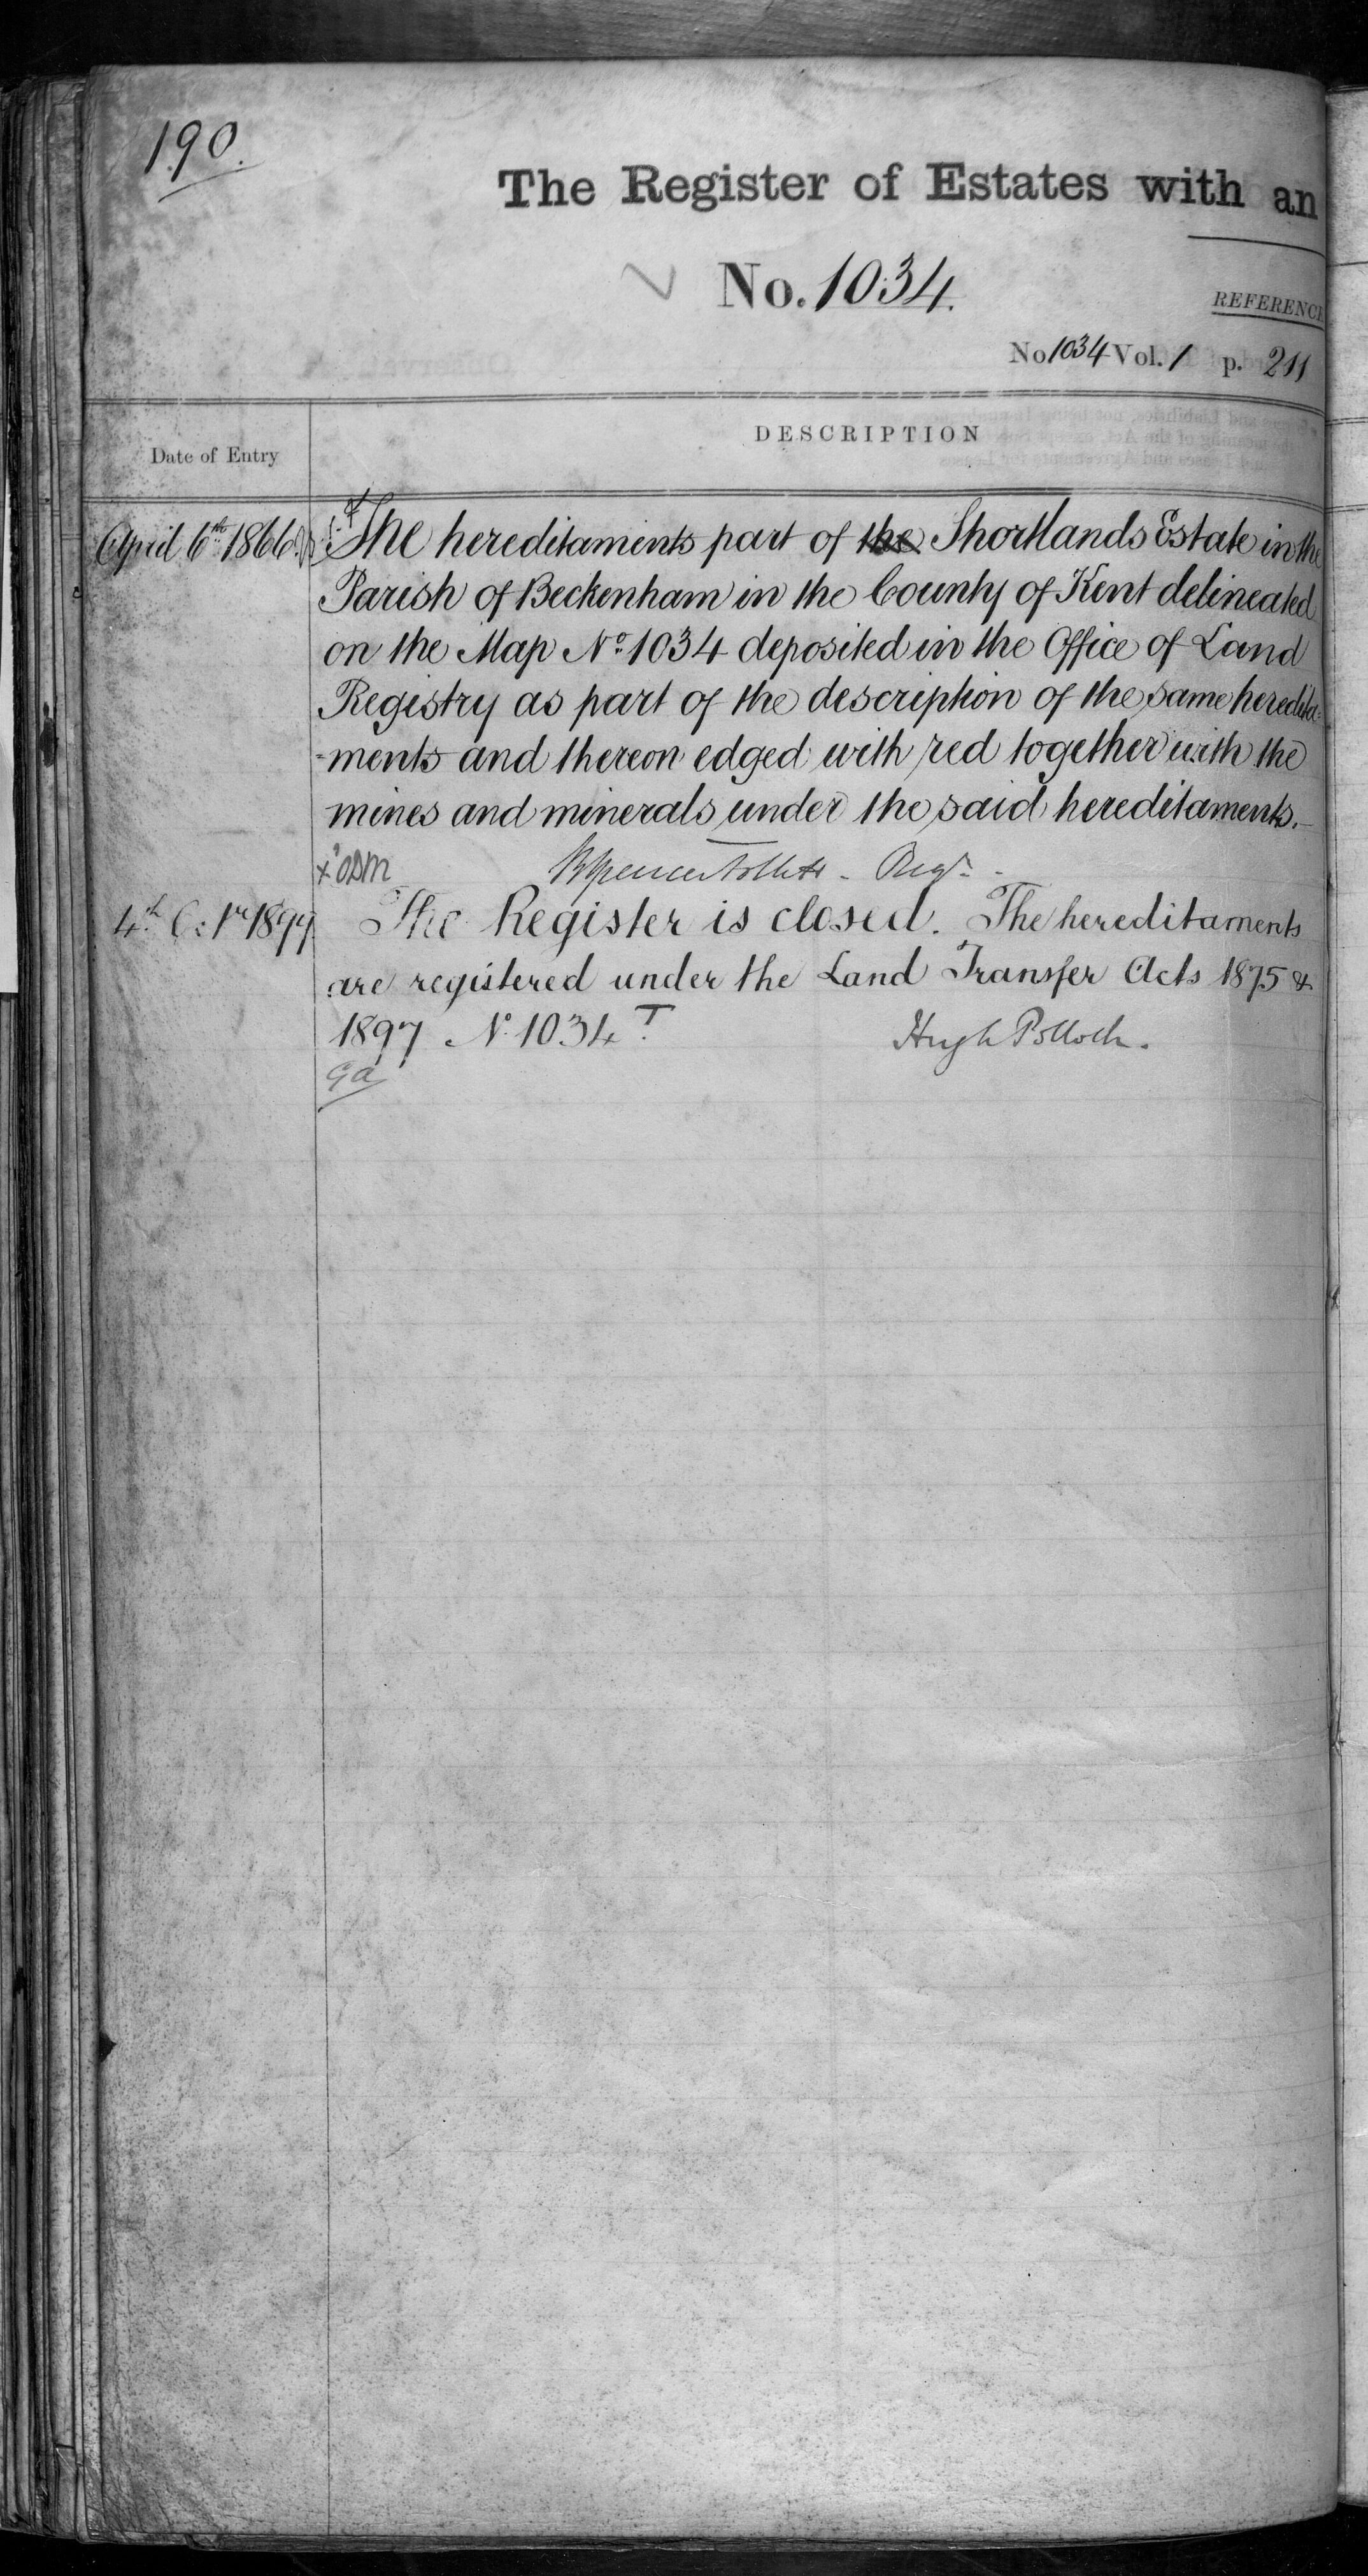 190.
The Register of Estates with an
No. 1034.
REFERENCE
No 1034 Vol. 1 p. 211
Date of Entry
DESCRIPTION
April 6th 1866 The hereditaments part of the Shortlands Estate in the
Parish of Beckenham in the County of Kent delineated
on the Map No 1034 deposited in the Office of Land
Registry as part of the description of the same heredita=
=ments and thereon edged with red together with the
mines and minerals under the said hereditaments.
Spencer Follett - Regr.
4th 1899 The Register is closed. The hereditaments
are registered under the Land Transfer Acts 1875 &
1897 No 1034 T Hugh Pollock.